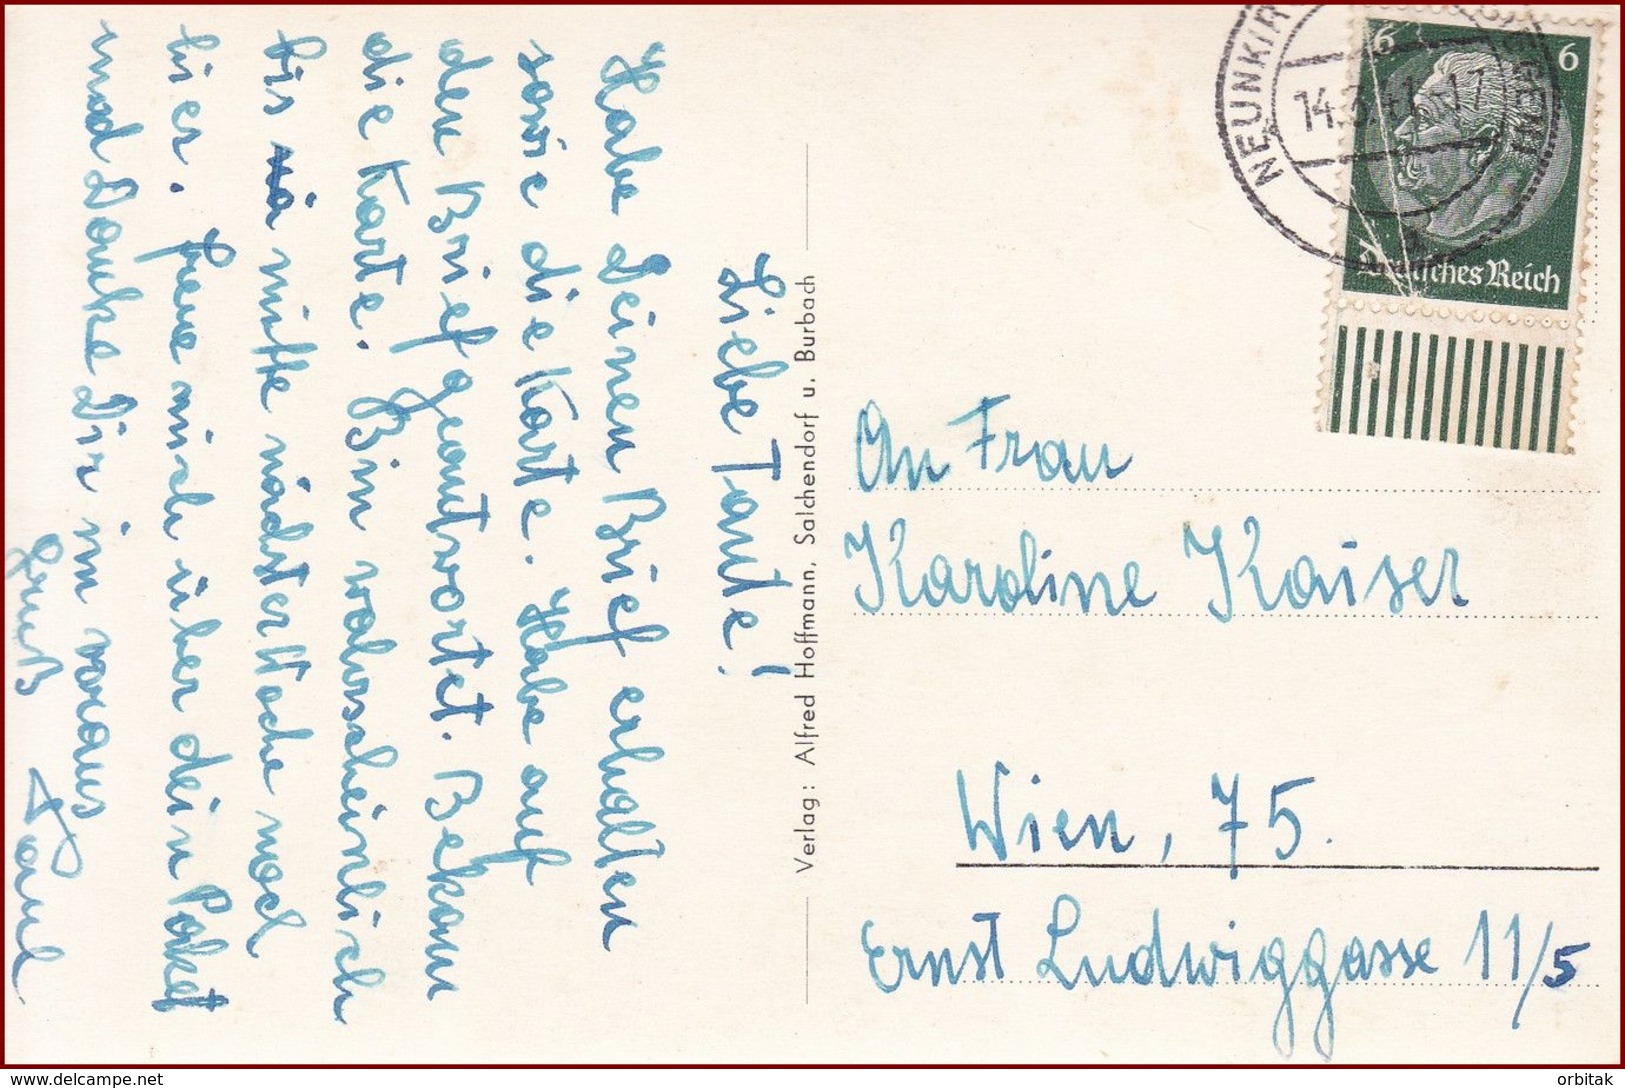 Liebe Tante!
Habe Deinen Brief erhalten
sowie die Karte. Habe auf
den Brief geantwortet. Bekam
die Karte. Bin wahrscheinlich
bis mitte nächster Woche noch
hier. freue mich über dein Paket
und Danke Dir im voraus
Gruß Paul
Verlag: Alfred Hoffmann, Salchendorf u. Burbach
NEUNKIR
14.3.41.-17
6 6
Deutsches Reich
An Frau
Karoline Kaiser
Wien, 75.
Ernst Ludwiggasse 11/5
http://www.delcampe.net
orbitak